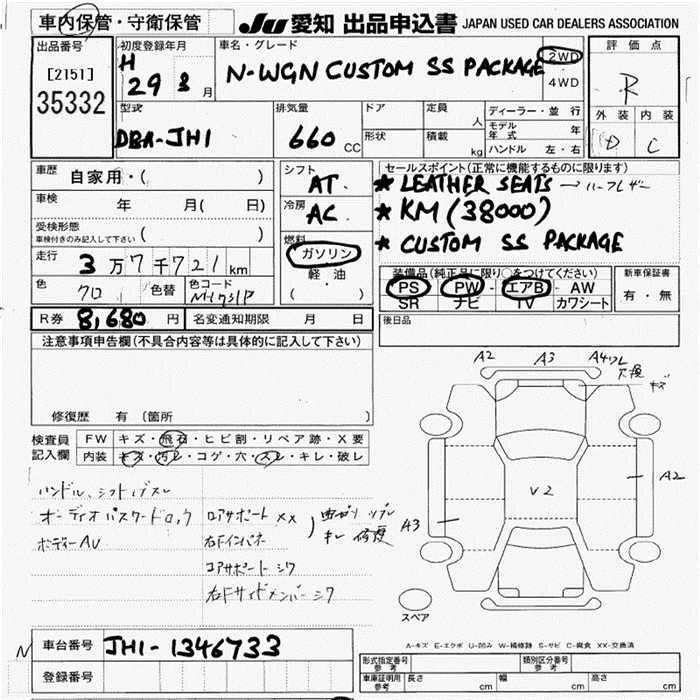 車内保管・守衛保管
JU 愛知 出品申込書 JAPAN USED CAR DEALERS ASSOCIATION
出品番号
[2151]
35332
初度登録年月
H 29 8 月
車名・グレード
N-WGN CUSTOM SS PACKAGE
2WD
4WD
評価点
R
外装 内装
D C
型式
DBA-JH1
排気量
660 CC
ドア
形状
定員
人
積載
kg
ディーラー・並行
モデル年式 年
ハンドル 左・右
車歴
自家用・( )
車検
年 月( 日)
受検形態
車検付きのみ記入して下さい ( )
走行
3万7千721km
色
クロ
色替
色コード
シフト
AT
冷房
AC
燃料
ガソリン
軽・油
( )
セールスポイント(正常に機能するものに限ります)
* LEATHER SEATS → ハーフレザー
* KM (38000)
* CUSTOM SS PACKAGE
装備品(純正品に限り○をつけてください)
PS PW エアB AW
SR ナビ TV カワシート
新車保証書
有・無
R券 8,680 円
名変通知期限 月 日
後日品
注意事項申告欄(不具合内容等は具体的に記入して下さい)
修復歴 有 〔箇所
検査員記入欄
FW キズ・飛石・ヒビ割・リペア跡・X要
内装 キズ・汚レ・コゲ・穴・スレ・キレ・破レ
ハンドル、シフトノブスレ
オーディオパスワードロック
ボディーAU
コアサポート XX
右Fインパネ
コアサポート シワ
右Fサイドメンバー シワ
キレ 修復
A2 A3 A4
キズ
A2
V2
A3
スペア
A-キズ E-エクボ U-凹み W-補修跡 S-サビ C-腐食 XX-交換済
N
車台番号 JH1-1346733
登録番号
形式指定番号 参考
類別区分番号 参考
車庫証明用 参考
長さ cm
幅 cm
高さ cm